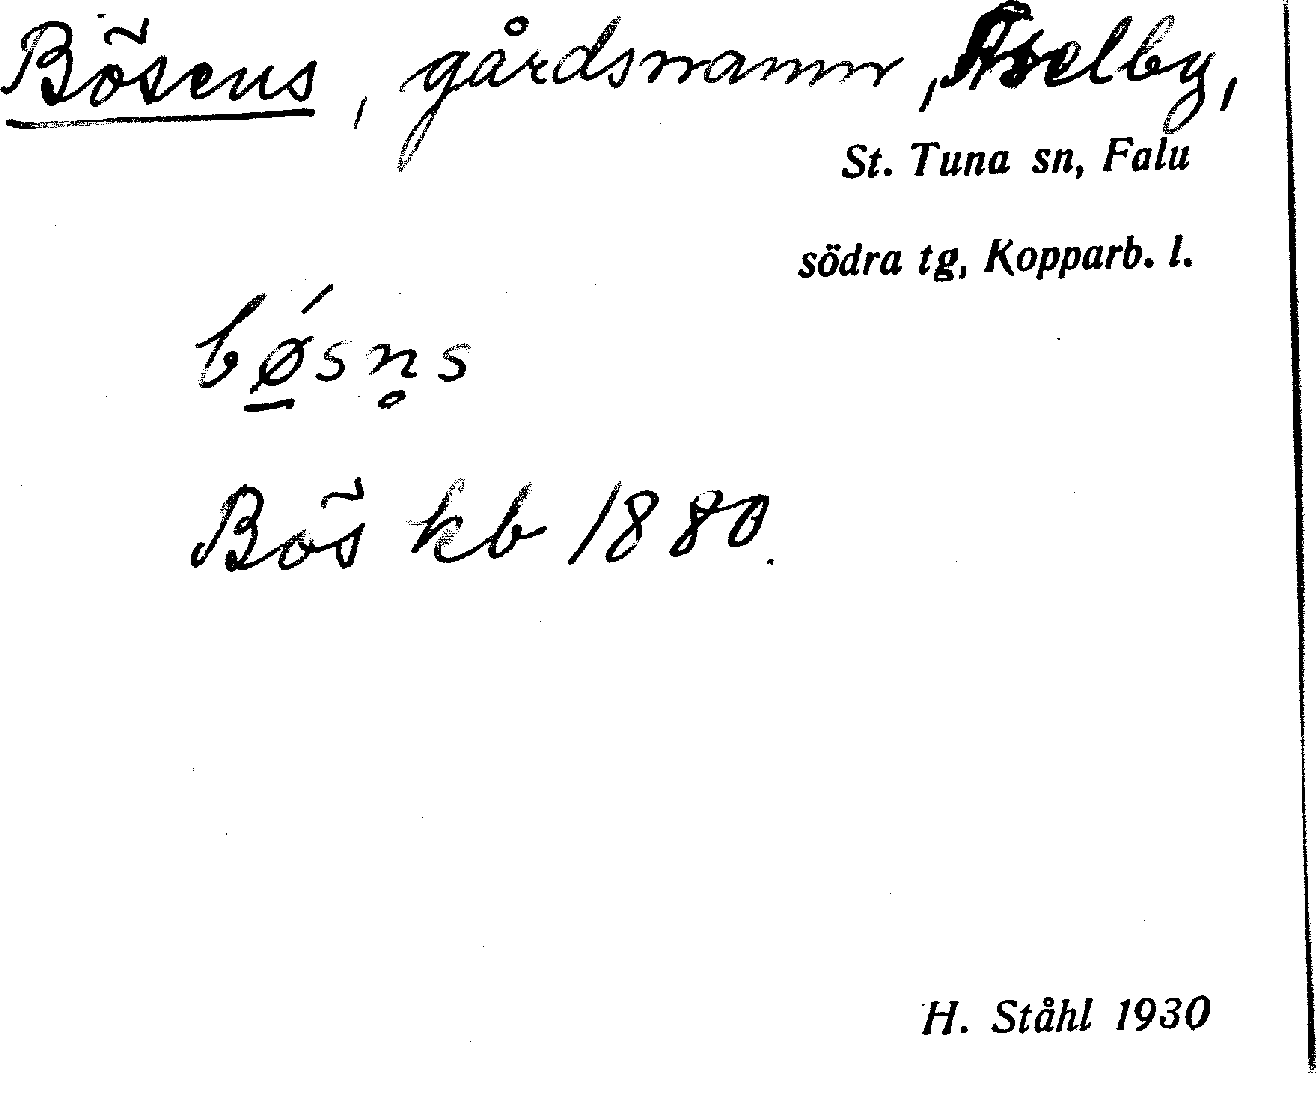 Bösens, gårdsnamn, Åselby,
St. Tuna sn, Falu
södra tg, Kopparb. l.
bǿ̱sn̥s
Bös kb 1880.
H. Ståhl 1930